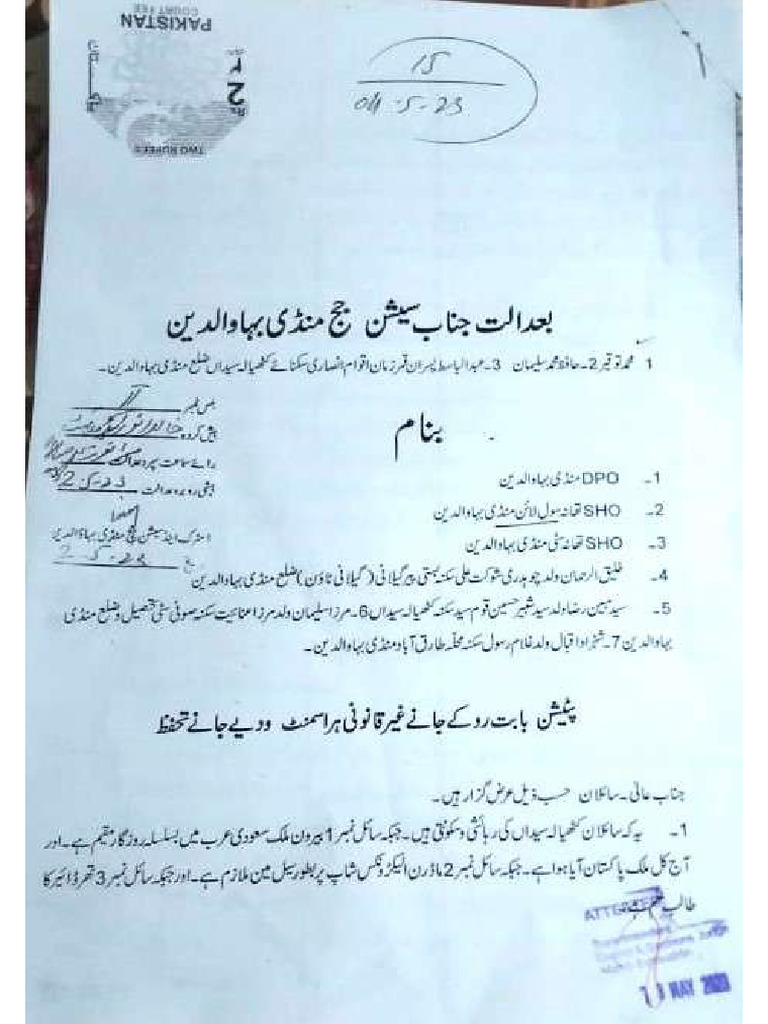 PAKISTAN
COURT FEE
2
TWO RUPEES
15
04-5-23
بعدالت جناب سیشن جج منڈی بہاوالدین
1 محمد توقیر 2۔ حافظ محمد سلیمان 3۔ عبدالباسط پسران قمر زمان اقوام انصاری سکنائے کٹھیالہ سیداں ضلع منڈی بہاوالدین۔
بنام
1۔ DPO منڈی بہاوالدین
2۔ SHO تھانہ سول لائن منڈی بہاوالدین
3۔ SHO تھانہ سٹی منڈی بہاوالدین
4۔ خلیق الرحمان ولد چوہدری شوکت علی سکنہ بستی پیر گیلانی (گیلانی ٹاؤن) ضلع منڈی بہاوالدین
5۔ سید مبین رضا ولد سید شبیر حسین قوم سید سکنہ کٹھیالہ سیداں 6۔ مرزا سلیمان ولد مرزا عنائیت سکنہ صوفی سٹی تحصیل و ضلع منڈی
بہاوالدین 7۔ شہزاد اقبال ولد غلام رسول سکنہ محلہ طارق آباد منڈی بہاوالدین۔
پٹیشن بابت روکے جانے غیر قانونی ہراسمنٹ ودیے جانے تحفظ
جناب عالی۔ سائلان حسب ذیل عرض گزار ہیں۔
1۔ یہ کہ سائلان کٹھیالہ سیداں کی رہائشی و سکونتی ہیں۔ جبکہ سائل نمبر 1 بیرون ملک سعودی عرب میں بسلسلہ روزگار مقیم ہے۔ اور
آج کل ملک پاکستان آیا ہوا ہے۔ جبکہ سائل نمبر 2 ماڈرن الیکڑونکس شاپ پر بطور سیل مین ملازم ہے۔ اور جبکہ سائل نمبر 3 تھرڈ ائیر کا
طالب علم ہے۔
ATTESTED
MAY